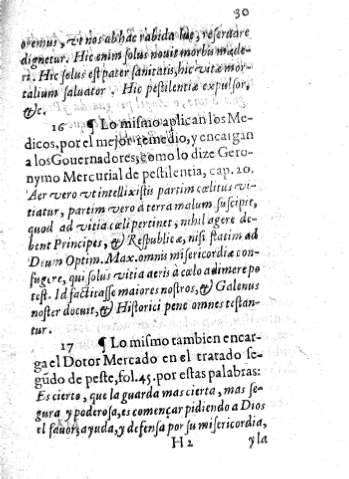 30
oremus, vt nos ab hac rabida lue, reseruare
dignetur. Hic enim solus nouit morbis mæde-
ri. Hic solus est pater sanitatis, hic vitæ mor-
talium saluator. Hic pestilentiæ expulsor,
&c.
16 ¶ Lo mismo aplican los Me-
dicos, por el mejor remedio, y encargan
a los Gouernadores, como lo dize Gero-
nymo Mercurial de pestilentia, cap. 20.
Aer vero vt intellixistis partim cœlitus vi-
tiatur, partim vero à terra malum suscipit,
quod ad vitia cœli pertinet, nihil agere de-
bent Principes, & Respublicæ, nisi statim ad
Deum Optim. Max. omnis misericordiæ con-
fugere, qui solus vitia aeris à cœlo adimere po
test. Id factitasse maiores nostros, & Galenus
noster docuit, & Historici pene omnes testan-
tur.
17 ¶ Lo mismo tambien encar-
ga el Dotor Mercado en el tratado se-
gũdo de peste, fol. 45. por estas palabras:
Es cierto, que la guarda mas cierta, mas se-
gura y poderosa, es començar pidiendo a Dios
el fauor, ayuda, y defensa por su misericordia,
H 2 y la